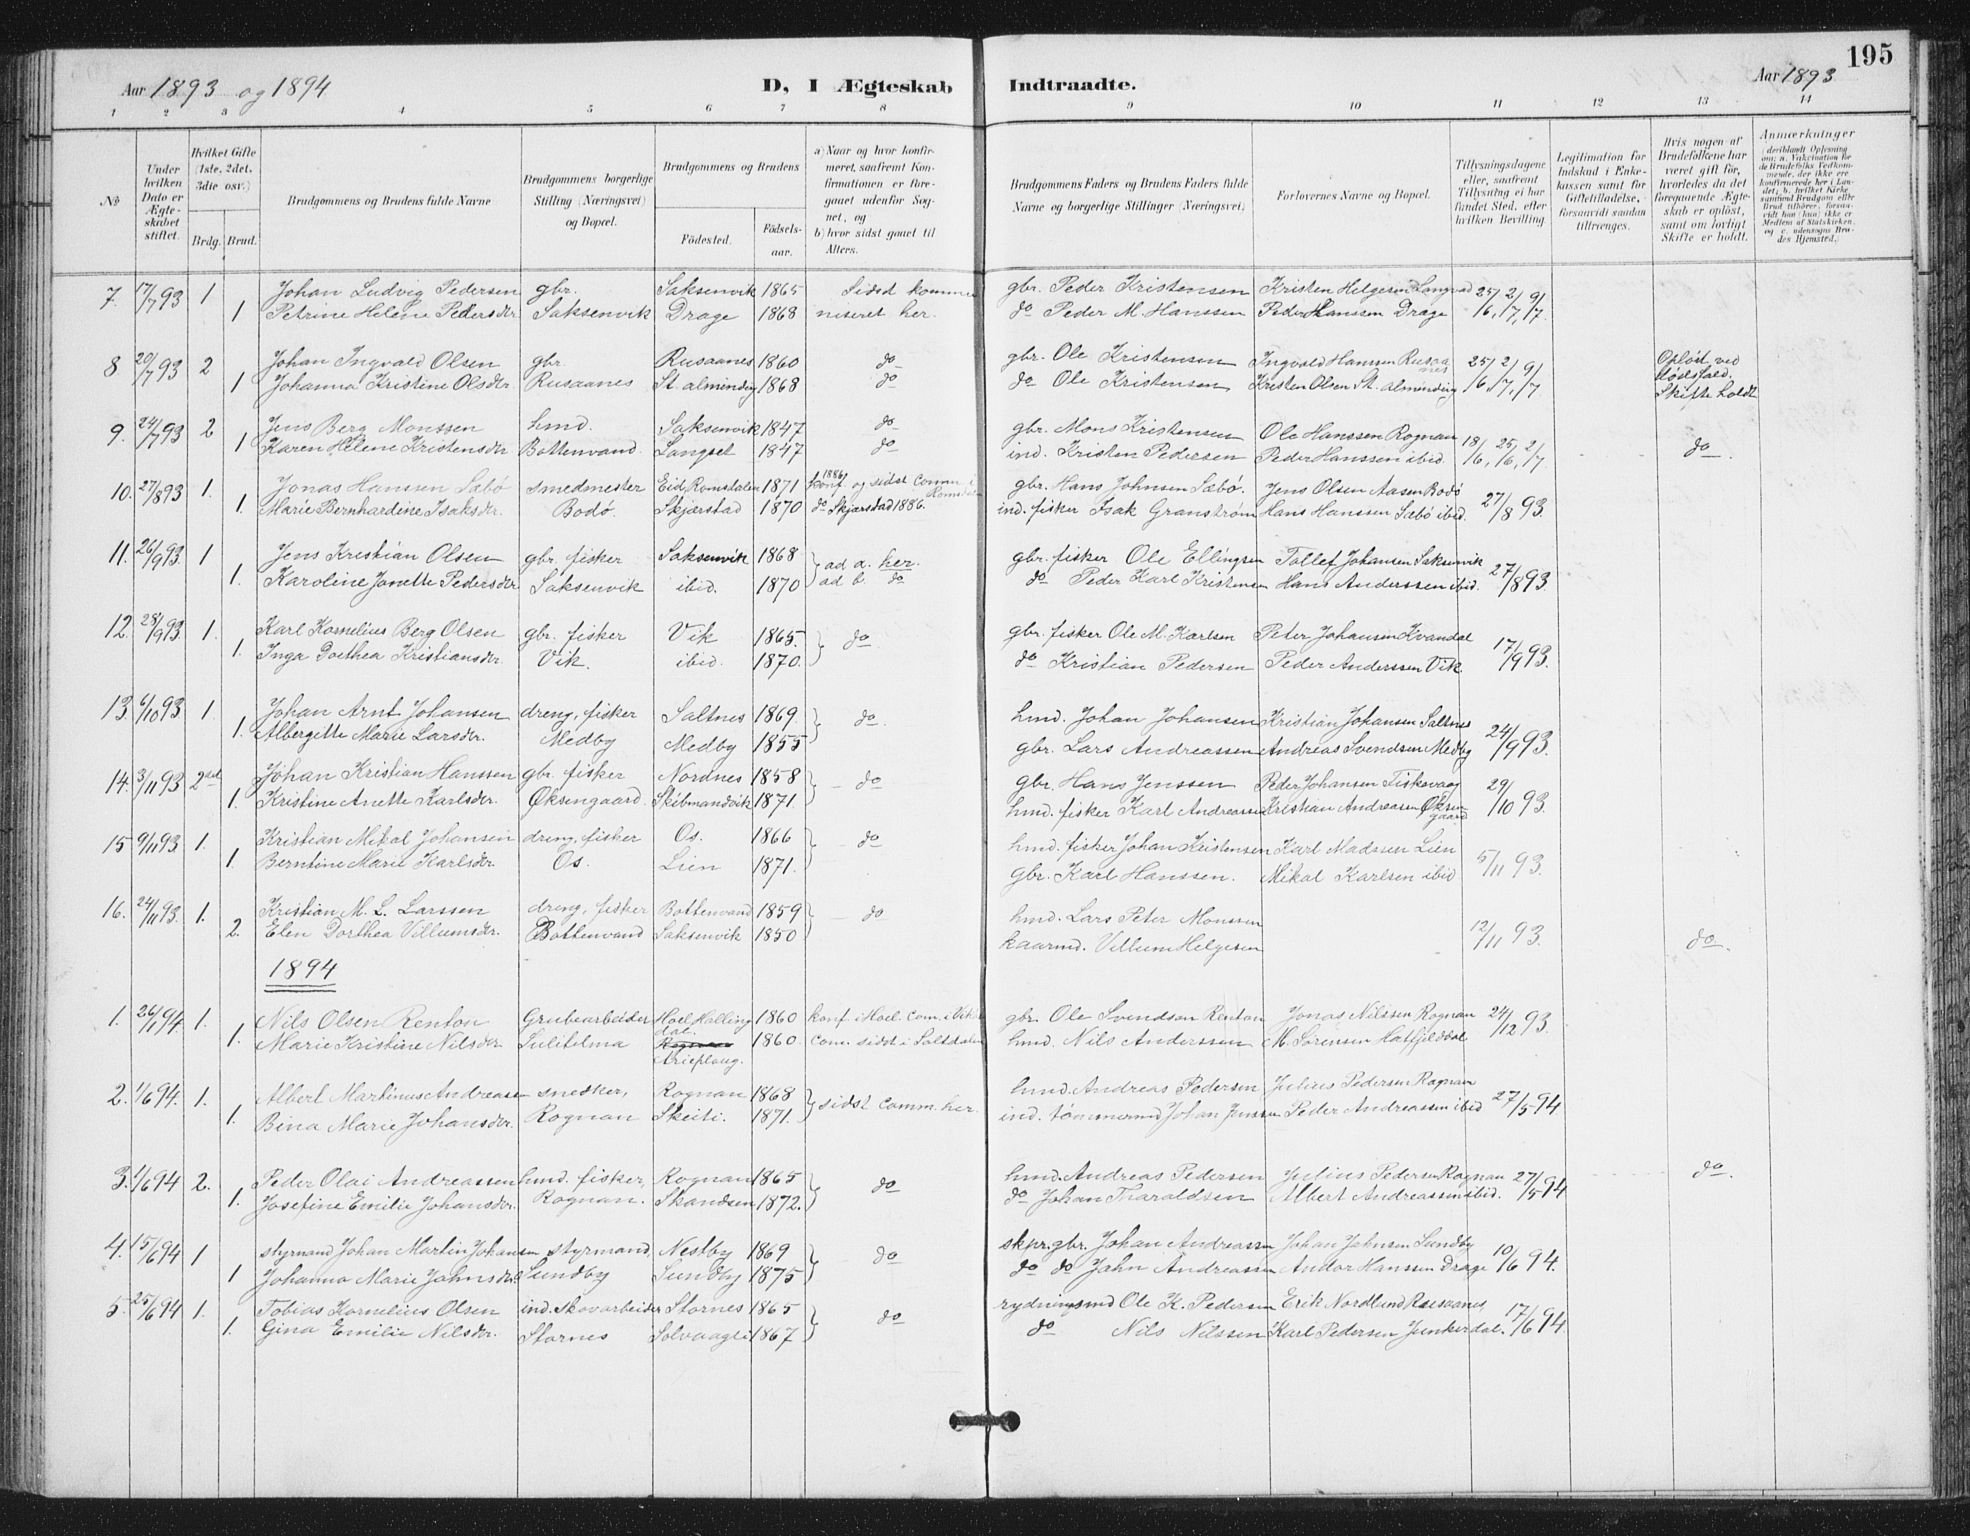 195
Aar 1893 og 1894
D, I Ægteskab Indtraadte.
Aar 1893
1 2 3 4 5 6 7 8 9 10 11 12 13 14
No
Under hvilken Dato er Ægteskabet stiftet.
Hvilket Gifte (1ste, 2det, 3die osv.)
Brdg. Brud.
Brudgommens og Brudens fulde Navne
Brudgommens borgerlige Stilling (Næringsvei) og Bopæl.
Brudgommens og Brudens
Födested.
Födselsaar.
a) Naar og hvor konfirmeret, saafremt Konfirmationen er foregaaet udenfor Sognet, og
b) hvor sidst gaaet til Alters.
Brudgommens Faders og Brudens Faders fulde Navne og borgerlige Stillinger (Næringsvei)
Forlovernes Navne og Bopæl.
Tillysningsdagene eller, saafremt Tillysning ei har fundet Sted, efter hvilken Bevilling.
Legitimation for Indskud i Enkekassen samt for Giftetilladelse, forsaavidt saadan tiltrænges.
Hvis nogen af Brudefolkene har været gift för, hvorledes da det foregaaende Ægteskab er oplöst, samt om lovligt Skifte er holdt.
Anmærkninger
7. 17/7 93 1 Johan Ludvig Pedersen gbr. Saksenvik 1865 Sidst kommu- gbr. Peder Kristensen Kristen Helgesen Langvad 25/6, 2/7, 9/7
1 Petrine Helene Pedersdr Saksenvik Drage 1868 niseret her. do Peder M. Hanssen Peder Hanssen Drage
8 20/7 93 2 Johan Ingvald Olsen gbr. Rusaanes 1860 do gbr. Ole Kristensen Ingvald Hanssen Rusaanes 25/6, 2/7, 9/7 Opløst ved dødsfald. Skifte holdt
1 Johanna Kristine Olsdr. Rusaanes St. alminding 1868 do do Ole Kristensen Kristen Olsen St. alminding
9. 24/7 93 2 Jens Berg Monssen hmd. Saksenvik 1847 do gbr. Mons Kristensen Ole Hanssen Rognan 18/6, 25/6, 2/7 do.
1 Karen Helene Kristensdr Bottenvand. Langset 1847 do ind. Kristen Pedersen Peder Hanssen ibid.
10. 27/8 93 1. Jonas Hansen Sæbö smedmester Eid, Romsdalen 1871 konf. 1886 og sidst comm. i Romsdalen gbr. Hans Johnsen Sæbö. Jens Olsen Aasen Bodö 27/8 93.
1. Marie Bernhardine Isaksdr. Bodö. Skjærstad 1870 do Skjærstad 1886. ind. fisker Isak Granström Hans Hanssen Sæbö ibid.
11. 26/9 93. 1 Jens Kristian Olsen gbr. fisker Saksenvik 1868 ad a. her. gbr. fisker Ole Ellingsen Tollef Johansen Saksenvik 27/8 93.
1. Karoline Janette Pedersdr Saksenvik ibid. 1870 ad b. do do Peder Karl Kristensen Hans Anderssen ibid.
12. 28/9 93. 1. Karl Kornelius Berg Olsen gbr. fisker Vik 1865. do gbr. fisker Ole M. Karlsen Peter Johansen Kvandal 17/9 93.
1. Inga Dorthea Kristiansdr. Vik. ibid. 1870. do Kristian Pedersen Peder Anderssen Vik
13. 6/10 93. 1. Johan Arnt Johansen dreng, fisker Saltnes 1869. do. hmd. Johan Johansen Kristian Johansen Saltnes 24/9 93.
1. Albergitte Marie Larsdr. Medby Medby 1855 gbr. Lars Andreassen Andreas Svendsen Medby
14. 3/11 93 2det Johan Kristian Hanssen gbr. fisker Nordnes 1858 do gbr. Hans Jenssen Peder Johansen Fiskevaag 29/10 93.
1. Kristine Anette Karlsdr. Øksengaard. Skibmandsvik 1871. hmd. fisker Karl Andreassen Kristian Andreasen Øksengaard
15 9/11 93. 1. Kristian Mikal Johansen dreng, fisker Os. 1866 do hmd. fisker Johan Kristensen Karl Madssen Lien 5/11 93.
1. Berntine Marie Karlsdr. Os. Lien 1871. gbr. Karl Hanssen. Mikal Karlsen ibid
16. 24/11 93. 1. Kristian M. L. Larssen dreng, fisker Bottenvand 1859 do hmd. Lars Peter Monssen 12/11 93. do.
2. Elen Dorthea Villumsdr. Bottenvand Saksenvik 1850 kaarmd. Villum Helgesen
1894
1. 26/1 94. 1. Nils Olsen Renton Grubearbeider Hoel Hallingdal. 1860 konf. i Hoel. com. i Vik gbr. Ole Svendsen Renton Jonas Nilssen Rognan 24/12 93.
1. Marie Kristine Nilsdr Sulitelma Rognan Arieploug. 1860. com. sidst i Saltdalen hmd. Nils Anderssen M. Sörensen Hatfjelddal
2. 1/6 94. 1. Albert Martinus Andreassen snedker, Rognan 1868 sidst comm. her. hmd. Andreas Pedersen Julius Pedersen Rognan 27/5 94
1. Bina Marie Johansdr. Rognan Skeiti. 1871. ind. tömmermd Johan Jenssen Peder Andreassen ibid
3. 1/6 94 2. Peder Olai Andreassen hmd. fisker, Rognan 1865 do hmd. Andreas Pedersen Julius Pedersen Rognan 27/5 94 do.
1. Josefine Emilie Johansdr. Rognan. Skandsen 1872. do Johan Tharaldsen Albert Andreassen ibid.
4. 15/6 94 1 styrmand Johan Martin Johansen styrmand, Nestby 1869 do skpr. gbr. Johan Andreassen Johan Jahnsen Sundby 10/6 94.
1 Johanna Marie Jahnsdr. Sundby Sundby 1875 do do Jahn Andreassen Andor Hanssen Drage
5. 25/6 94 1. Tobias Kornelius Olsen ind. Skovarbeider Stornes 1865 do rydningsmd Ole K. Pedersen Erik Nordlund Russaanes, 17/6 94.
1. Gina Emilie Nilsdr. Stornes Solvaagli 1867 do Nils Nilssen Karl Pedersen Junkerdal.